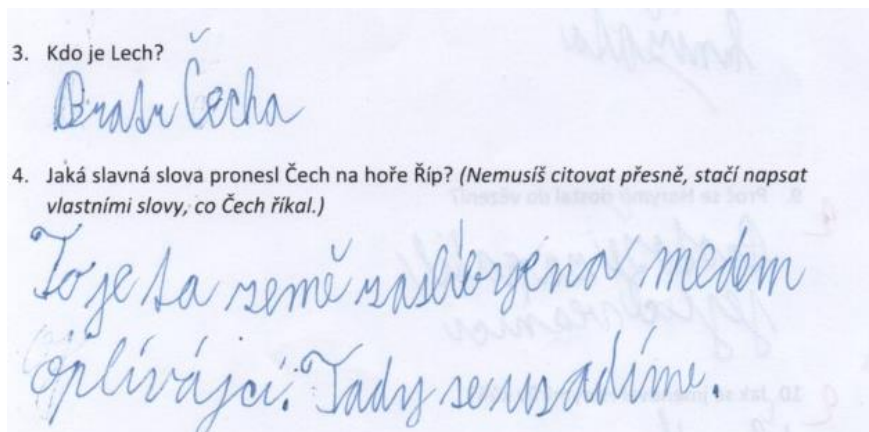 3. Kdo je Lech?
Bratr Čecha
4. Jaká slavná slova pronesl Čech na hoře Říp? (Nemusíš citovat přesně, stačí napsat
vlastními slovy, co Čech říkal.)
To je ta země zaslíbená medem
oplívající. Tady se usadíme.